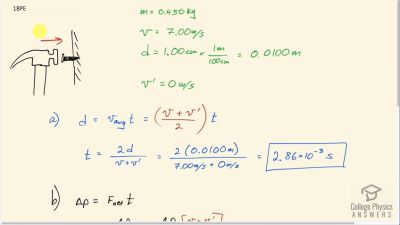 18PE
m = 0.450 kg
v = 7.00 m/s
d = 1.00 cm × 1m/100cm = 0.0100 m
v' = 0 m/s
a) d = v_avg t = ((v + v')/2) t
t = 2d/(v+v') = 2(0.0100m)/(7.00m/s + 0m/s) = 2.86×10⁻³ s
b) Δp = F_net t
College Physics
ANSWERS